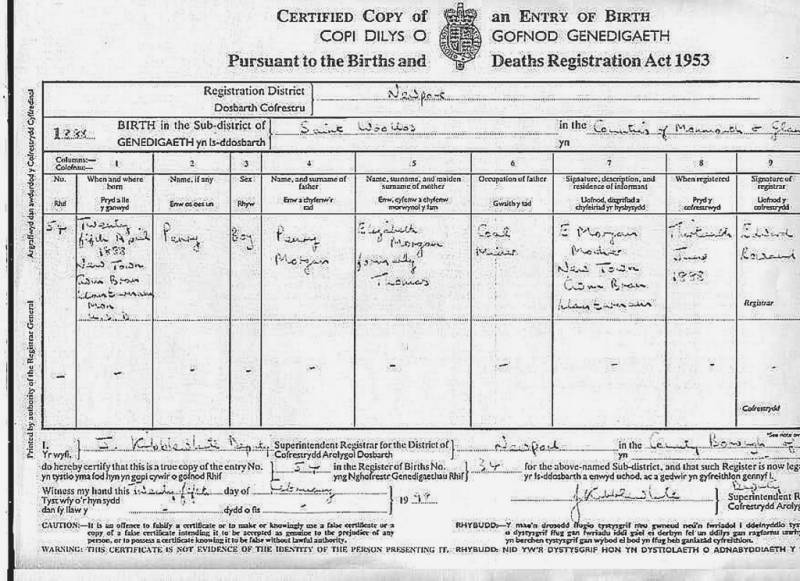 CERTIFIED COPY OF an ENTRY OF BIRTH
COPI DILYS O GOFNOD GENEDIGAETH
Pursuant to the Births and Deaths Registration Act 1953
Registration District Newport
Dosbarth Cofrestru
1888 BIRTH in the Sub-district of Saint Woollos in the Counties of Monmouth & Glam
GENEDIGAETH yn Is-ddosbarth yn
Columns:— 1 2 3 4 5 6 7 8 9
Colofnau:—
No. When and where born Name, if any Sex Name, and surname of father Name, surname, and maiden surname of mother Occupation of father Signature, description, and residence of informant When registered Signature of registrar
Rhif Pryd a lle y ganwyd Enw os oes un Rhyw Enw a chyfenw'r tad Enw, cyfenw a chyfenw morwynol y fam Gwaith y tad Llofnod, disgrifiad a chyfeiriad yr hysbysydd Pryd y cofrestrwyd Llofnod y cofrestrydd
57 Twenty Penry Boy Penry Elizabeth Coal E Morgan Thirteenth Edward
fifth April Morgan Morgan Miner Mother June
1888 formerly New Town 1888
New Town Thomas Cwm Bran
Cwm Bran
Mon
U.S.D
Registrar
- - - - - - - - -
Cofrestrydd
*See note
I, J. Kibblewhite Deputy Superintendent Registrar for the District of Newport in the County Borough of
Yr wyf i, Cofrestrydd Arolygol Dosbarth yn
do hereby certify that this is a true copy of the entry No. 57 in the Register of Births No. 34 for the above-named Sub-district, and that such Register is now
yn tystio yma fod hyn yn gopi cywir o gofnod Rhif yng Nghofrestr Genedigaethau Rhif yr Is-ddosbarth a enwyd uchod, ac a gedwir yn gyfreithlon gennyf i.
Witness my hand this twenty fifth day of February 1999 J Kibblewhite Deputy Superintendent
Tyst wyf o'r hyn sydd dan fy llaw y - dydd o fis - Cofrestrydd
CAUTION:—It is an offence to falsify a certificate or to make or knowingly use a false certificate or a
copy of a false certificate intending it to be accepted as genuine to the prejudice of any
person, or to possess a certificate knowing it to be false without lawful authority.
RHYBUDD:—Y mae'n drosedd ffugio tystysgrif neu
WARNING: THIS CERTIFICATE IS NOT EVIDENCE OF THE IDENTITY OF THE PERSON PRESENTING IT. RHYBUDD: NID YW'R DYSTYSGRIF HON YN DYSTIOLAETH O ADNABYDDIAETH Y
Printed by authority of the Registrar General
Argraffwyd dan awdurdod y Cofrestrydd Cyffredinol